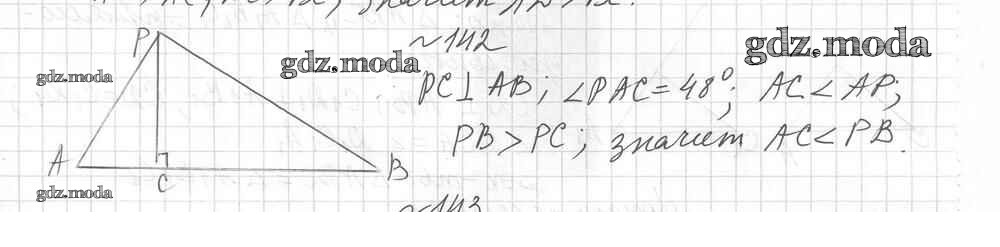 ~142
P
gdz.moda
gdz.moda
gdz.moda
PC⊥AB; ∠PAC=48°; AC<AP;
PB>PC; значит AC<PB.
A
B
C
gdz.moda
~143